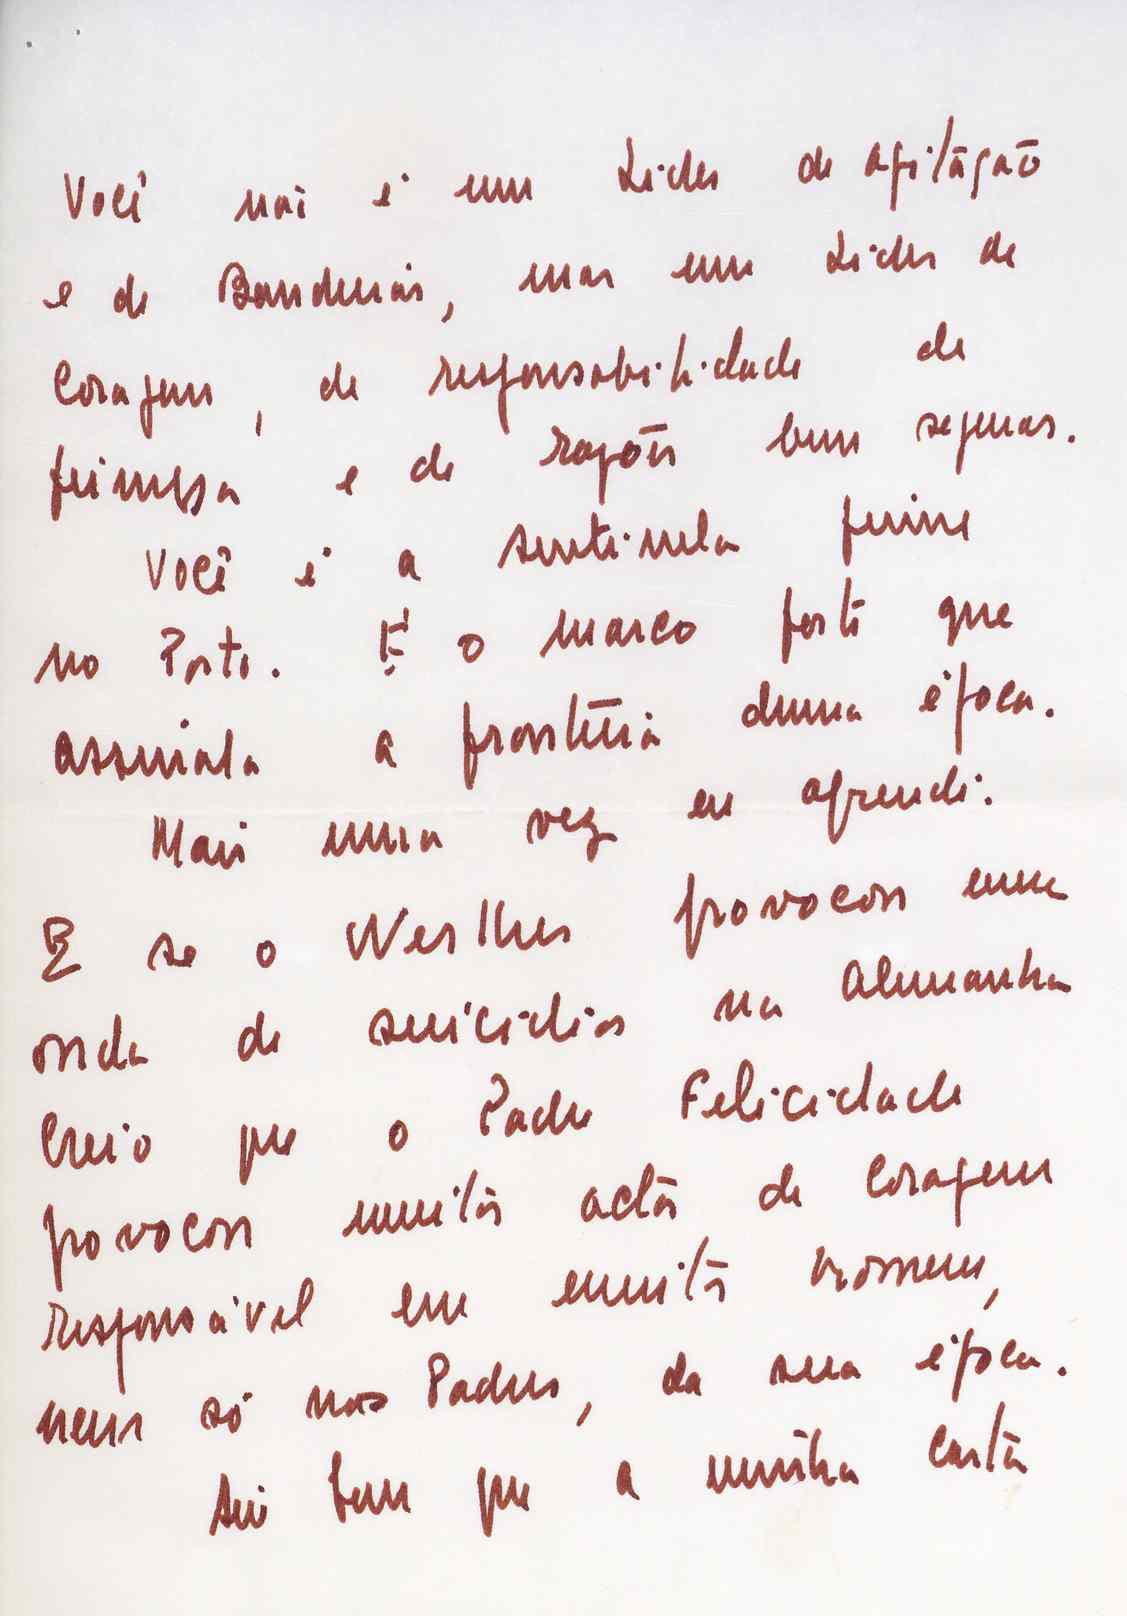 Você não é um Lider de agitação
e de Bandeiras, mas um Lider de
Coragem, de responsabilidade de
firmessa e de razões bem seguras.
Você é a sentinela firme
no Porto. É o marco forte que
assinala a fronteira duma época.
Mais uma vez eu aprendi.
E se o Werther provocou uma
onda de suicidios na Alemanha
Creio que o Padre Felicidade
provocou muitos actos de Coragem
responsável em muitos homens,
nem só nos Padres, da sua época.
Sei bem que a minha carta